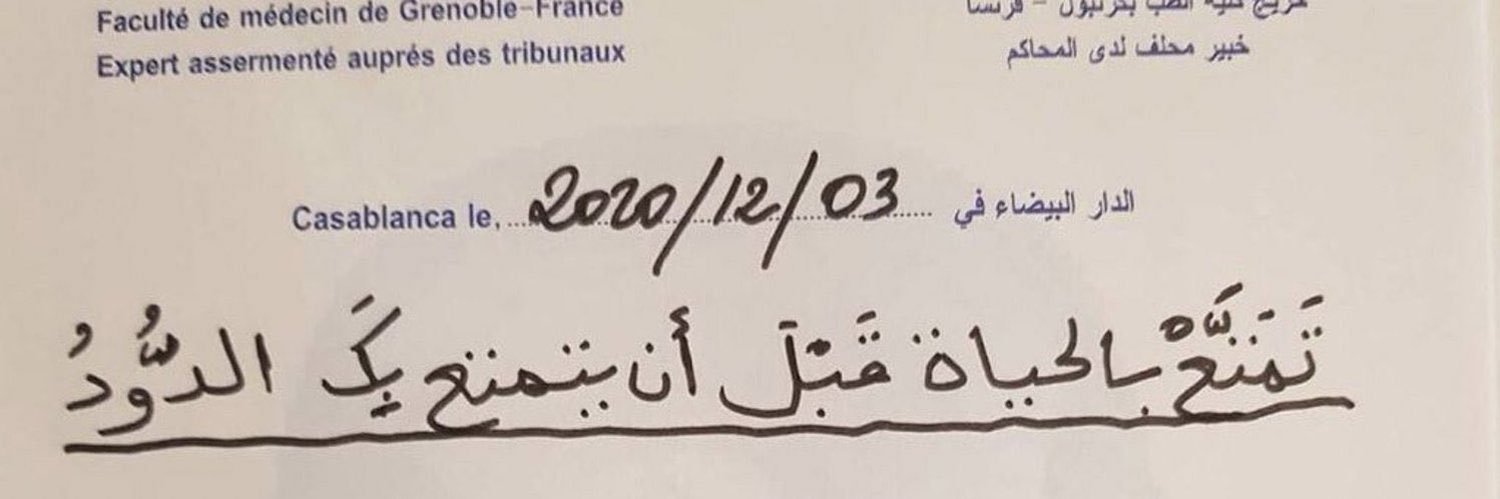 Faculté de médecin de Grenoble-France
خريج كلية الطب بكرنبول - فرنسا
Expert assermenté auprés des tribunaux
خبير محلف لدى المحاكم
Casablanca le, 2020/12/03 الدار البيضاء في
تَمَتَّعْ بالحياة قَبْلَ أن يتمتع بِكَ الدُّودُ